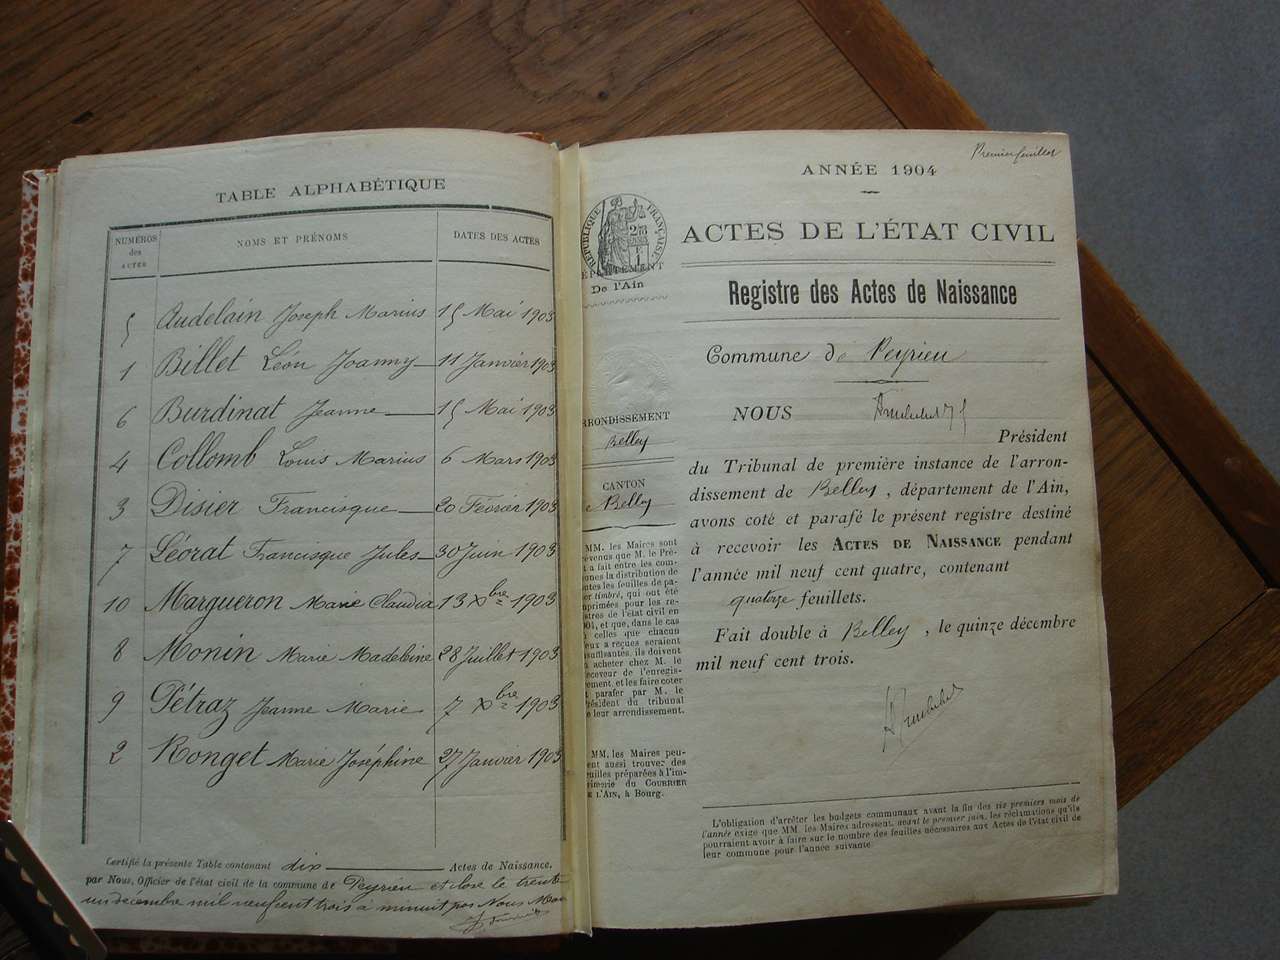 TABLE ALPHABÉTIQUE
NUMÉROS des ACTES NOMS ET PRÉNOMS DATES DES ACTES
5 Audelain Joseph Marius 15 Mai 1903
1 Billet Léon Joanny 11 Janvier 1903
6 Burdinat Jeanne 15 Mai 1903
4 Collomb Louis Marius 6 Mars 1903
3 Disier Francisque 20 Février 1903
7 Léorat Francisque Jules 30 Juin 1903
10 Margueron Marie Claudia 13 Xbre 1903
8 Monin Marie Madeleine 28 Juillet 1903
9 Pétraz Jeanne Marie 7 Xbre 1903
2 Ronget Marie Joséphine 27 Janvier 1903
Certifié la présente Table contenant dix Actes de Naissance.
par Nous, Officier de l'état civil de la commune de Peyrieu et close le trente
un décembre mil neuf cent trois à minuit par Nous Maire
Premier feuillet
ANNÉE 1904
RÉPUBLIQUE FRANÇAISE
ÉPARTEMENT
De l'Ain
ACTES DE L'ÉTAT CIVIL
Registre des Actes de Naissance
Commune de Peyrieu
RRONDISSEMENT
Belley
CANTON
Belley
MM. les Maires sont
révenus que M. le Pré-
t a fait entre les com-
unes la distribution de
utes les feuilles de pa-
er timbré, qui ont été
mprimées pour les re-
stres de l'état civil en
04, et que, dans le cas
celles que chacun
eux a reçues seraient
suffisantes, ils doivent
acheter chez M. le
eceveur de l'enregis-
ement, et les faire coter
parafer par M. le
résident du tribunal
e leur arrondissement.
MM. les Maires peu-
ent aussi trouver des
uilles préparées à l'im-
rimerie du COURRIER
E L'AIN, à Bourg.
NOUS
Président
du Tribunal de première instance de l'arron-
dissement de Belley, département de l'Ain,
avons coté et parafé le présent registre destiné
à recevoir les ACTES DE NAISSANCE pendant
l'année mil neuf cent quatre, contenant
quatorze feuillets.
Fait double à Belley, le quinze décembre
mil neuf cent trois.
L'obligation d'arrêter les budgets communaux avant la fin des six premiers mois de
l'année exige que MM. les Maires adressent, avant le premier juin, les réclamations qu'ils
pourraient avoir à faire sur le nombre des feuilles nécessaires aux Actes de l'état civil de
leur commune pour l'année suivante